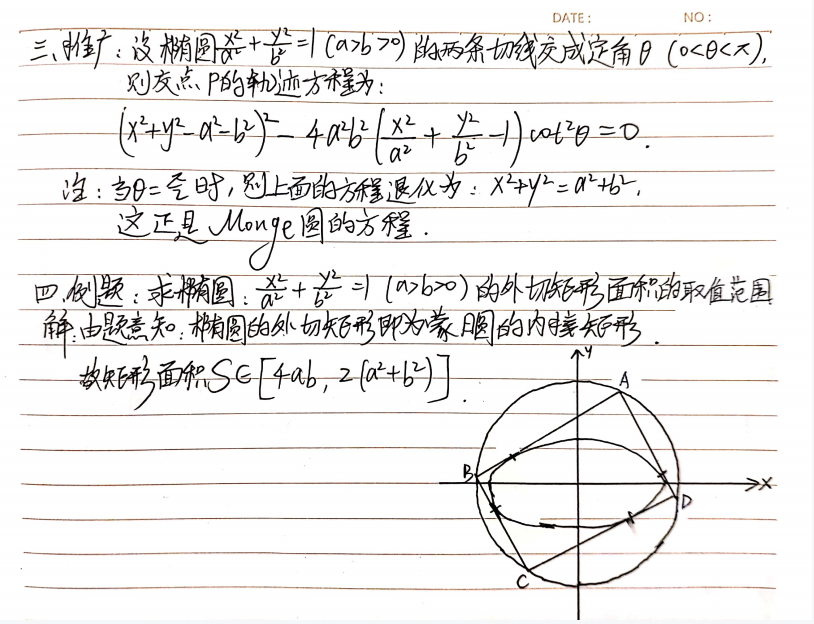 DATE: NO:
三、推广:设椭圆x²/a²+y²/b²=1(a>b>0)的两条切线交成定角θ(0<θ<π),
则交点P的轨迹方程为:
(x²+y²-a²-b²)²-4a²b²(x²/a²+y²/b²-1)cot²θ=0.
注:当θ=π/2时,则上面的方程退化为:x²+y²=a²+b²,
这正是Monge圆的方程.
四.例题:求椭圆:x²/a²+y²/b²=1(a>b>0)的外切矩形面积的取值范围
解:由题意知:椭圆的外切矩形即为蒙日圆的内接矩形.
故矩形面积S∈[4ab,2(a²+b²)].
y
A
B
x
D
C